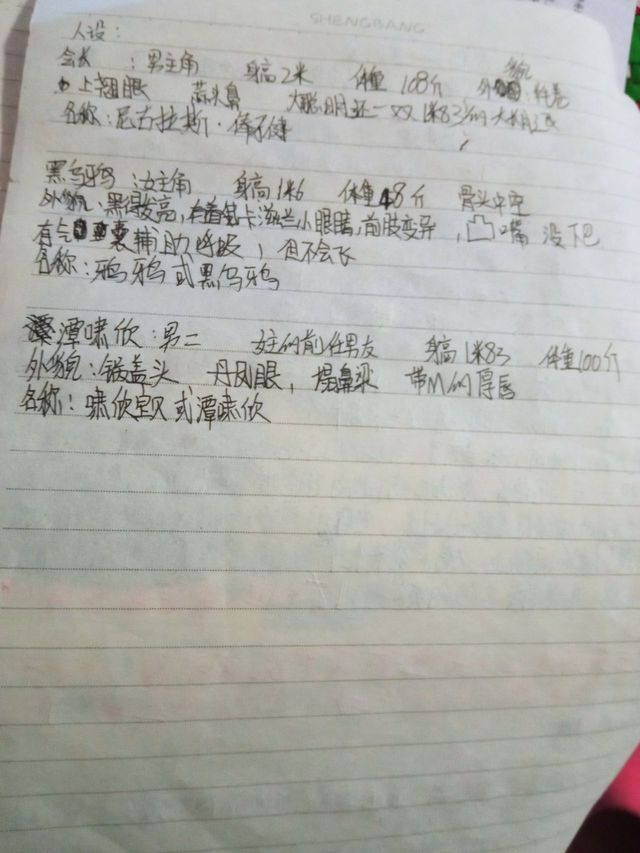 SHENGBANG
人设:
会长:男主角 身高2米 体重108斤 外貌:
上翘眼 蒜头鼻 大聪明还一双1米83的大长腿
名称:尼古拉斯·
黑乌鸦:女主角 身高1米6 体重48斤 骨头中空
外貌:黑得发亮,有着卡滋兰小眼睛,前肢变异,凸嘴 没下巴
有气囊辅助呼吸,但不会飞
名称:鸦鸦或黑乌鸦
潭啸欣:男二 女主的前任男友 身高1米83 体重100斤
外貌:锅盖头 丹凤眼,塌鼻梁 带M的厚唇
名称:啸欣毁或潭啸欣